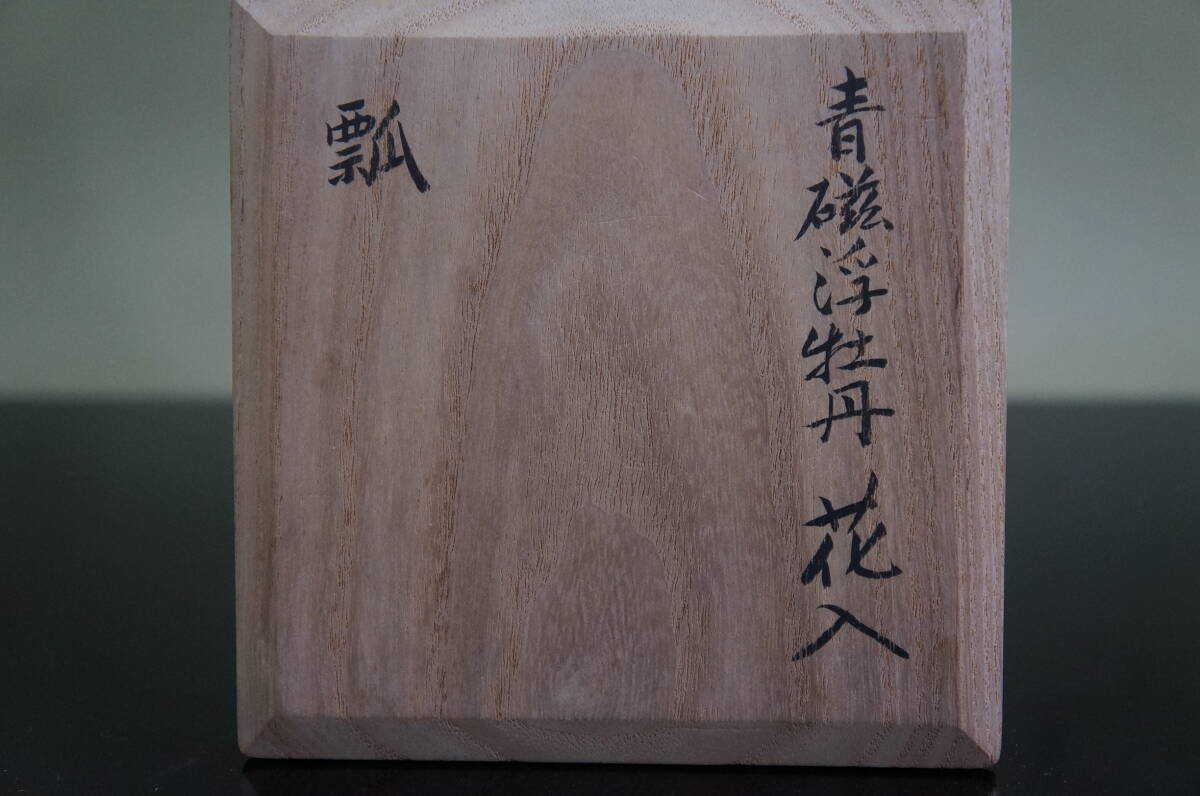 青磁浮牡丹 花入
瓢